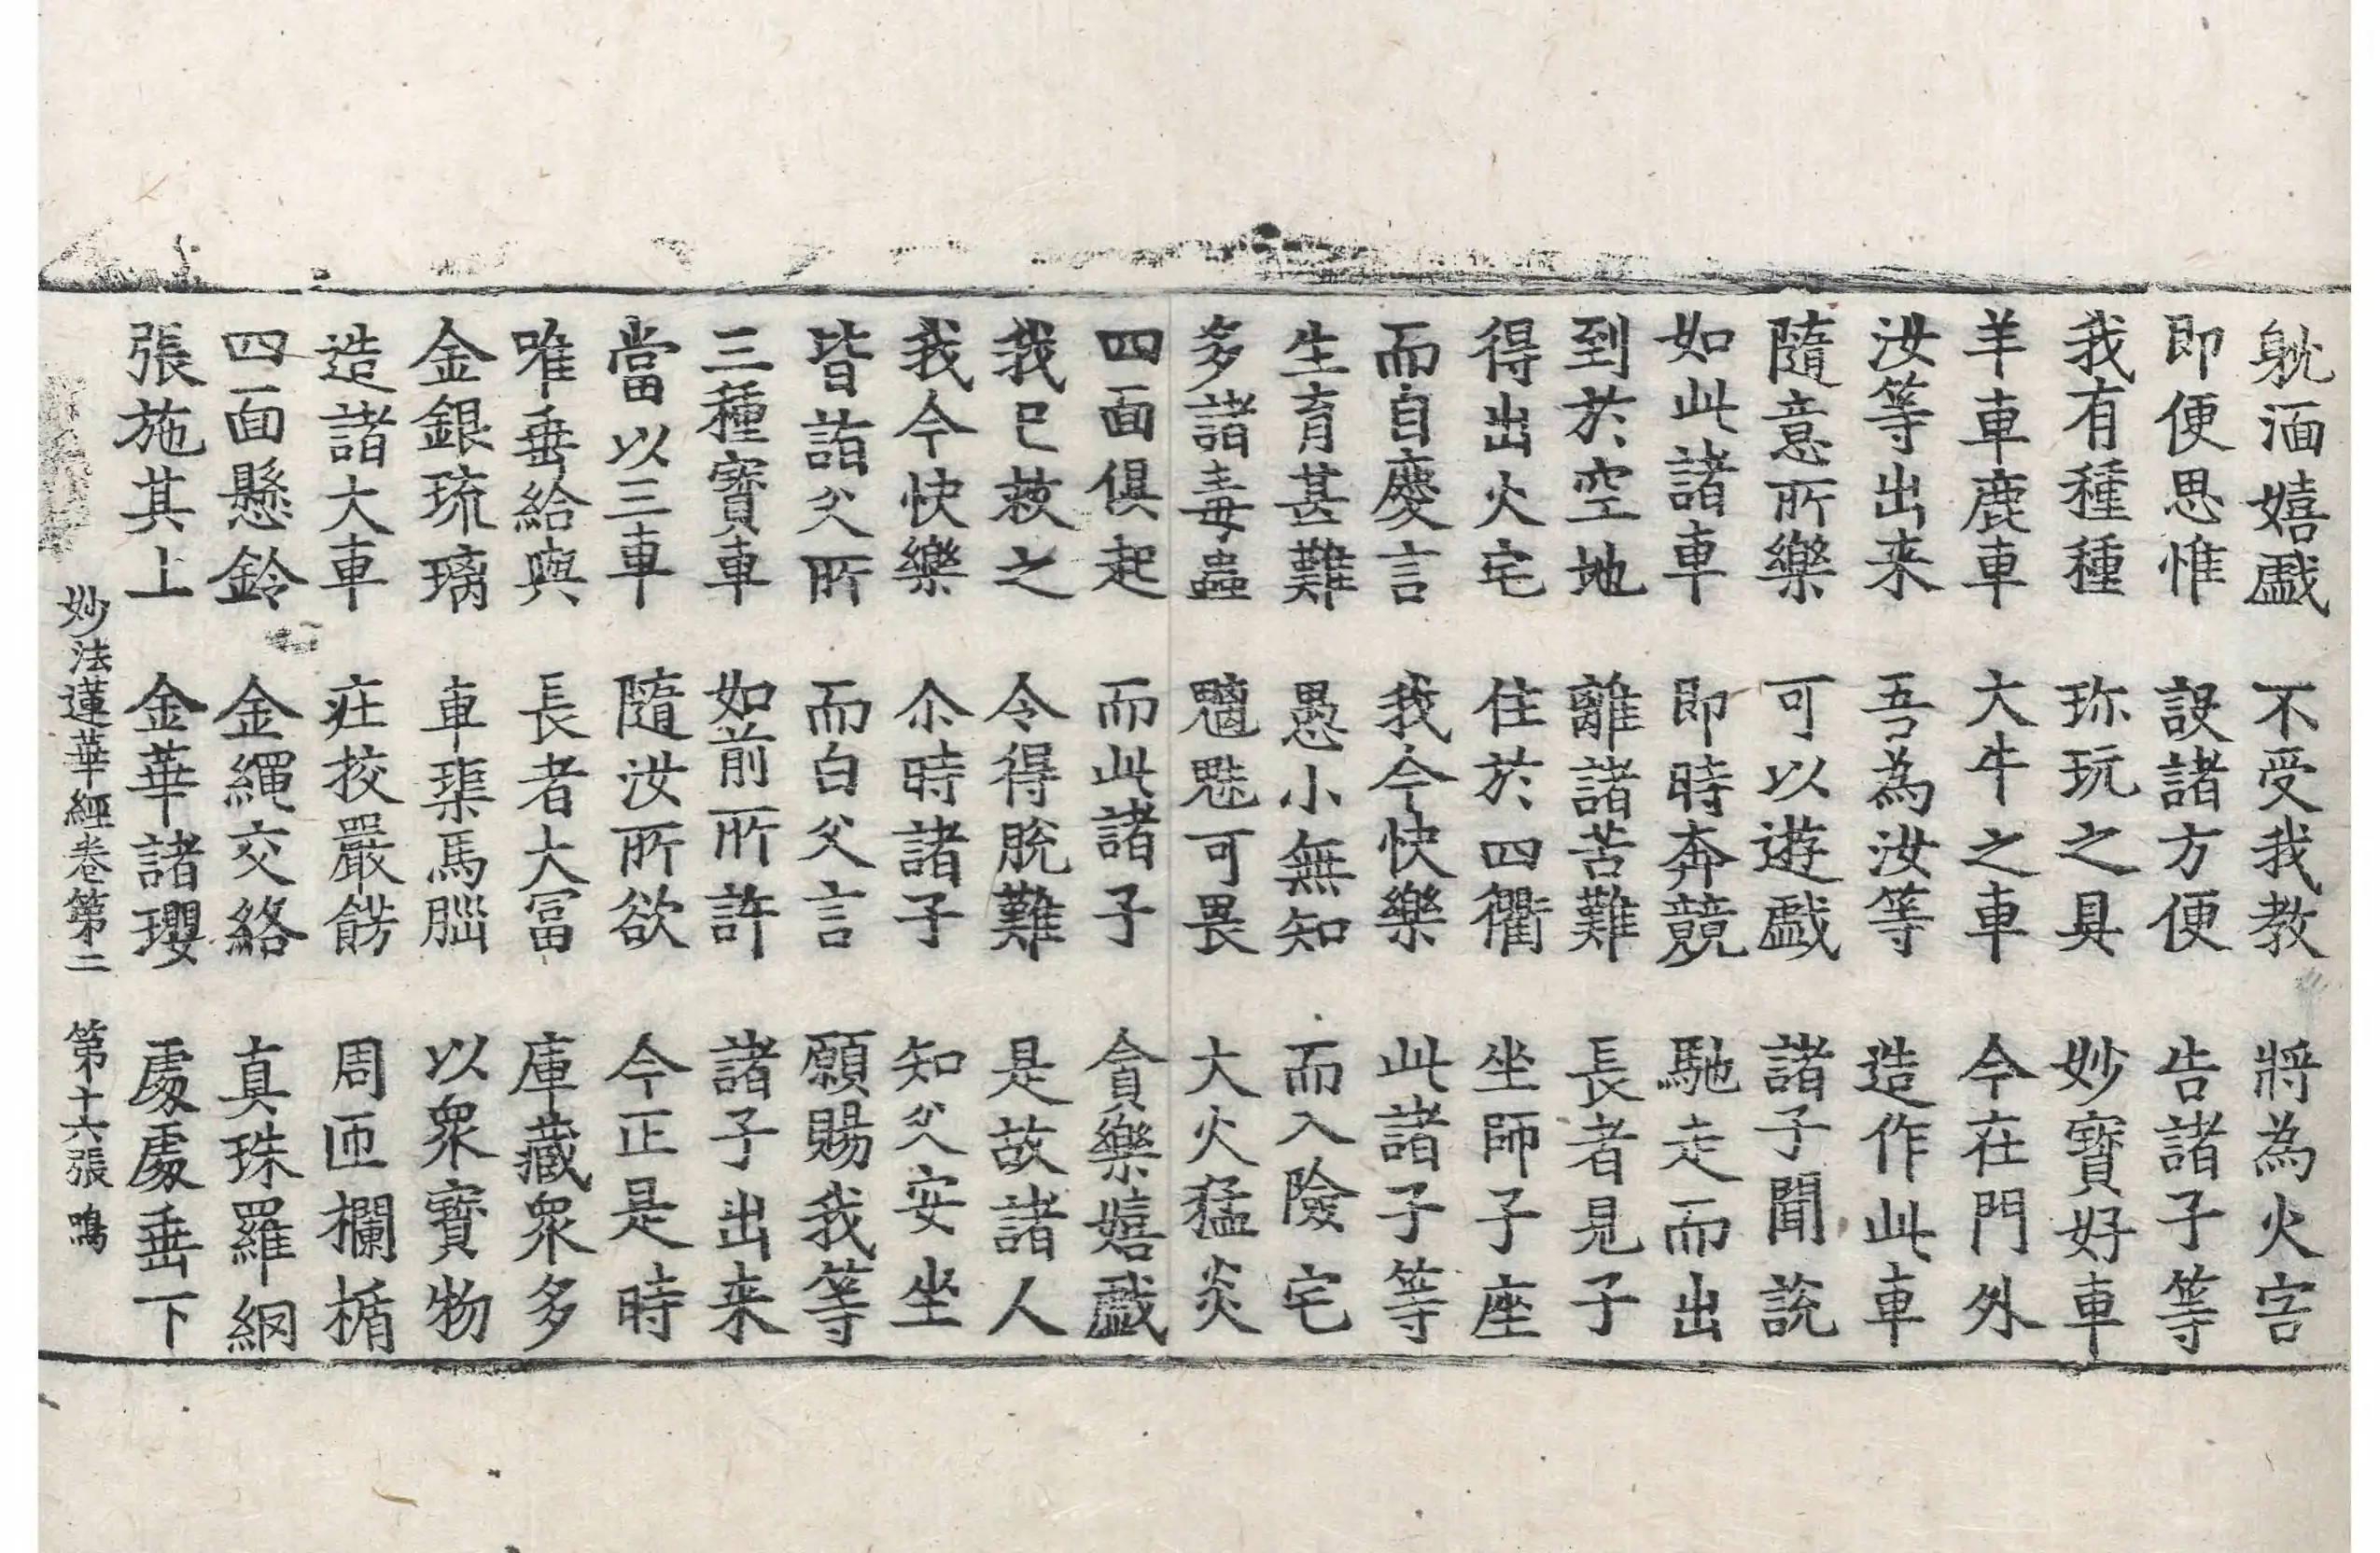 躭湎嬉戲 不受我教 將為火害
即便思惟 設諸方便 告諸子等
我有種種 珎玩之具 妙寶好車
羊車鹿車 大牛之車 今在門外
汝等出来 吾為汝等 造作此車
隨意所樂 可以遊戲 諸子聞說
如此諸車 即時奔競 馳走而出
到於空地 離諸苦難 長者見子
得出火宅 住於四衢 坐師子座
而自慶言 我今快樂 此諸子等
生育甚難 愚小無知 而入險宅
多諸毒蟲 魑魅可畏 大火猛炎
四面俱起 而此諸子 貪樂嬉戲
我已救之 令得脫難 是故諸人
我今快樂 尒時諸子 知父安坐
皆詣父所 而白父言 願賜我等
三種寶車 如前所許 諸子出来
當以三車 隨汝所欲 今正是時
唯垂給與 長者大冨 庫藏衆多
金銀琉璃 車𤦲馬腦 以衆寶物
造諸大車 莊挍嚴餝 周匝欄楯
四面懸鈴 金繩交絡 真珠羅網
張施其上 金華諸瓔 處處垂下
妙法蓮華經卷第二 第十六張 鳴